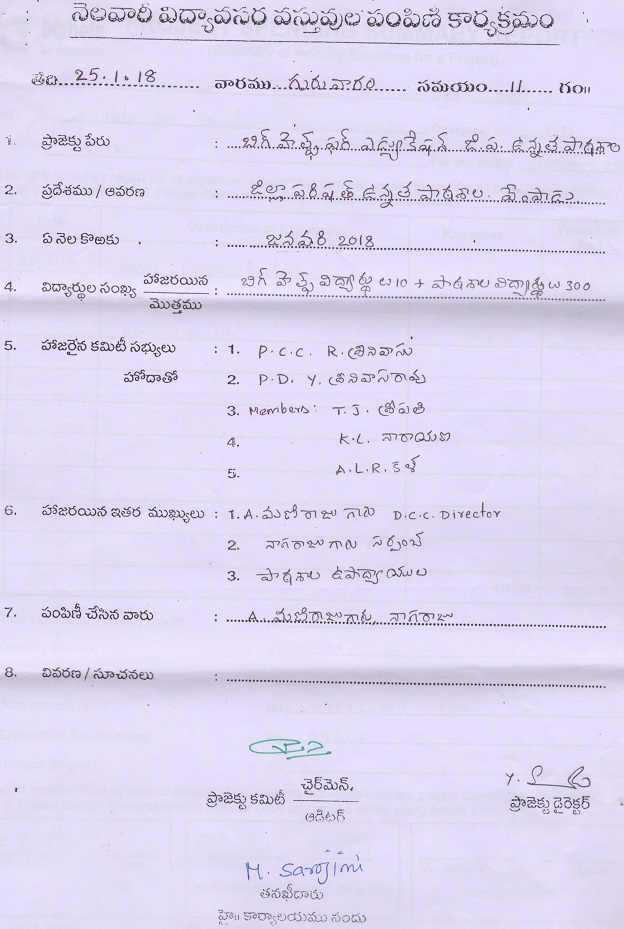 నెలవారీ విద్యావసర వస్తువుల పంపిణీ కార్యక్రమం
తేది 25.1.18 వారము గురువారం సమయం 11 గం॥
1. ప్రాజెక్టు పేరు : బిగ్ హెల్ప్ ఫర్ ఎడ్యుకేషన్ జి.ప. ఉన్నత పాఠశాల
2. ప్రదేశము / ఆవరణ : జిల్లా పరిషత్ ఉన్నత పాఠశాల. వేంపాడు
3. ఏ నెల కొఱకు : జనవరి 2018
4. విద్యార్థుల సంఖ్య హాజరయిన / మొత్తము : బిగ్ హెల్ప్ విద్యార్థులు 10 + పాఠశాల విద్యార్థులు 300
5. హాజరైన కమిటీ సభ్యులు : 1. P.C.C. R. శ్రీనివాసు
హోదాతో 2. P.D. Y. శ్రీనివాసరావు
3. Members: T.J. శ్రీపతి
4. K.L. నారాయణ
5. A.L.R.
6. హాజరయిన ఇతర ముఖ్యులు : 1. A. మణిరాజు గారు D.C.C. Director
2. నాగరాజు గారు సర్పంచ్
3. పాఠశాల ఉపాధ్యాయుల
7. పంపిణీ చేసిన వారు : A. మణిరాజుగారు, నాగరాజు
8. వివరణ / సూచనలు :
ప్రాజెక్టు కమిటీ ఛైర్‌మెన్. / ఆడిటర్
ప్రాజెక్టు డైరెక్టర్
M. Sarojini
తనఖీదారు
హై॥ కార్యాలయము నందు